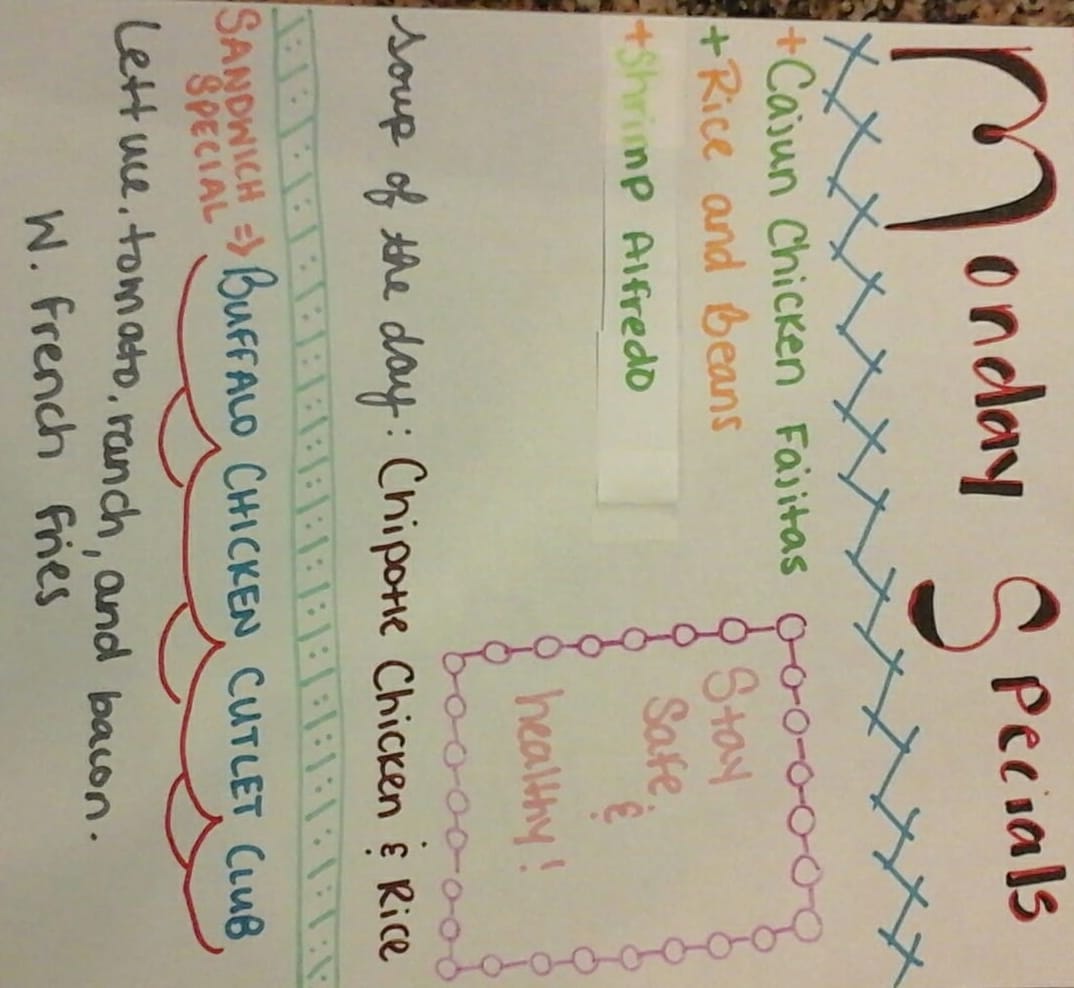 Monday Specials
+Cajun Chicken Fajitas
+Rice and Beans
+Shrimp Alfredo
Stay
Safe &
healthy!
soup of the day: Chipotle Chicken & Rice
SANDWICH => BUFFALO CHICKEN CUTLET CLUB
SPECIAL
Lettuce, tomato, ranch, and bacon.
W. French Fries